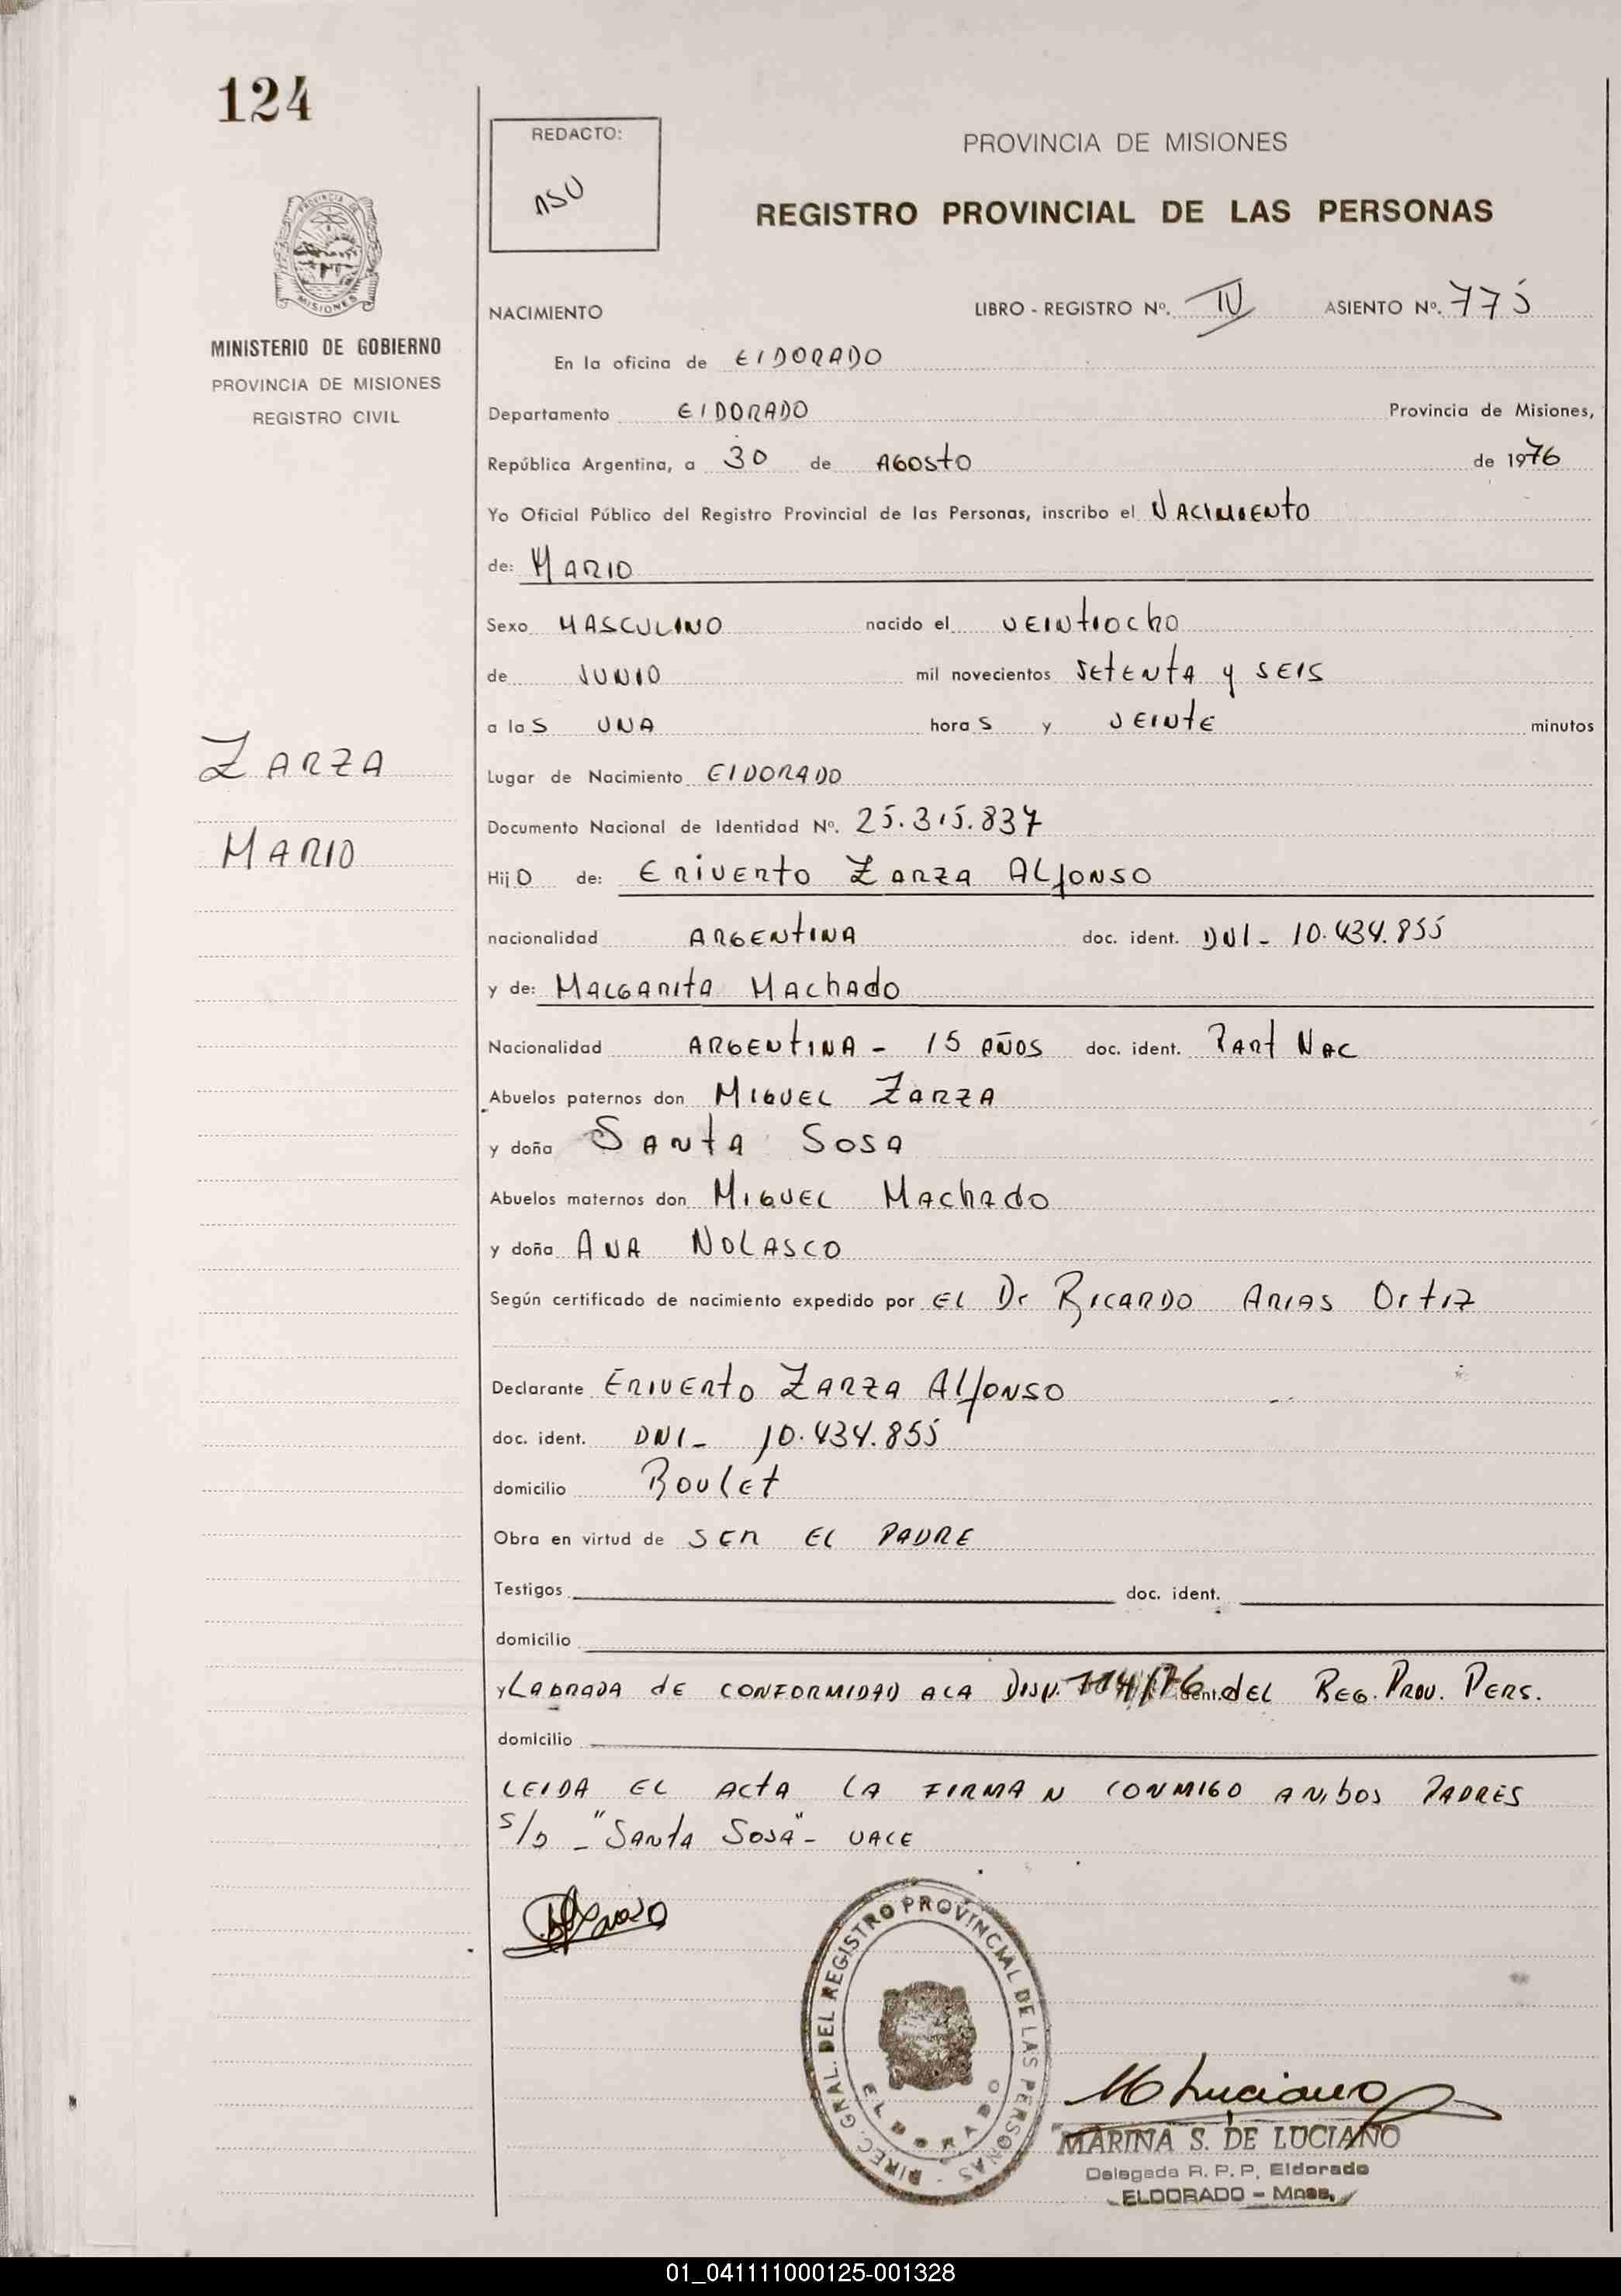 124
REDACTO:
PROVINCIA DE MISIONES
REGISTRO PROVINCIAL DE LAS PERSONAS
MINISTERIO DE GOBIERNO
PROVINCIA DE MISIONES
REGISTRO CIVIL
NACIMIENTO LIBRO - REGISTRO Nº. IV ASIENTO Nº. 775
En la oficina de ElDORADO
Departamento ElDORADO Provincia de Misiones,
República Argentina, a 30 de AGOSTO de 1976
Yo Oficial Público del Registro Provincial de las Personas, inscribo el NACIMIENTO
de: MARIO
Sexo MASCULINO nacido el VEINTIOCHO
de JUNIO mil novecientos SETENTA y SEIS
a las UNA horas y VEINTE minutos
ZARZA
MARIO
Lugar de Nacimiento ElDORADO
Documento Nacional de Identidad Nº. 25.315.837
HijO de: ERIVERTO ZARZA ALFONSO
nacionalidad ARGENTINA doc. ident. DNI- 10.434.855
y de: MALGARITA MACHADO
Nacionalidad ARGENTINA - 15 AÑOS doc. ident. PART NAC
Abuelos paternos don MIGUEL ZARZA
y doña SANTA SOSA
Abuelos maternos don MIGUEL MACHADO
y doña ANA NOLASCO
Según certificado de nacimiento expedido por EL Dr RICARDO ARIAS ORTIZ
Declarante ERIVERTO ZARZA ALFONSO
doc. ident. DNI- 10.434.855
domicilio ROULET
Obra en virtud de SER EL PADRE
Testigos doc. ident.
domicilio
y LABRADA de CONFORMIDAD A LA DISP. dEL REG. PROV. PERS.
domicilio
LEIDA EL ACTA LA FIRMAN CONMIGO AMBOS PADRES
S/D - "SANTA SOSA" - VALE
DIREC. GRAL. DEL REGISTRO PROVINCIAL DE LAS PERSONAS -
ELDORADO
M Luciano
MARINA S. DE LUCIANO
Delegada R. P. P. Eldorado
ELDORADO - Mnes.
01_041111000125-001328